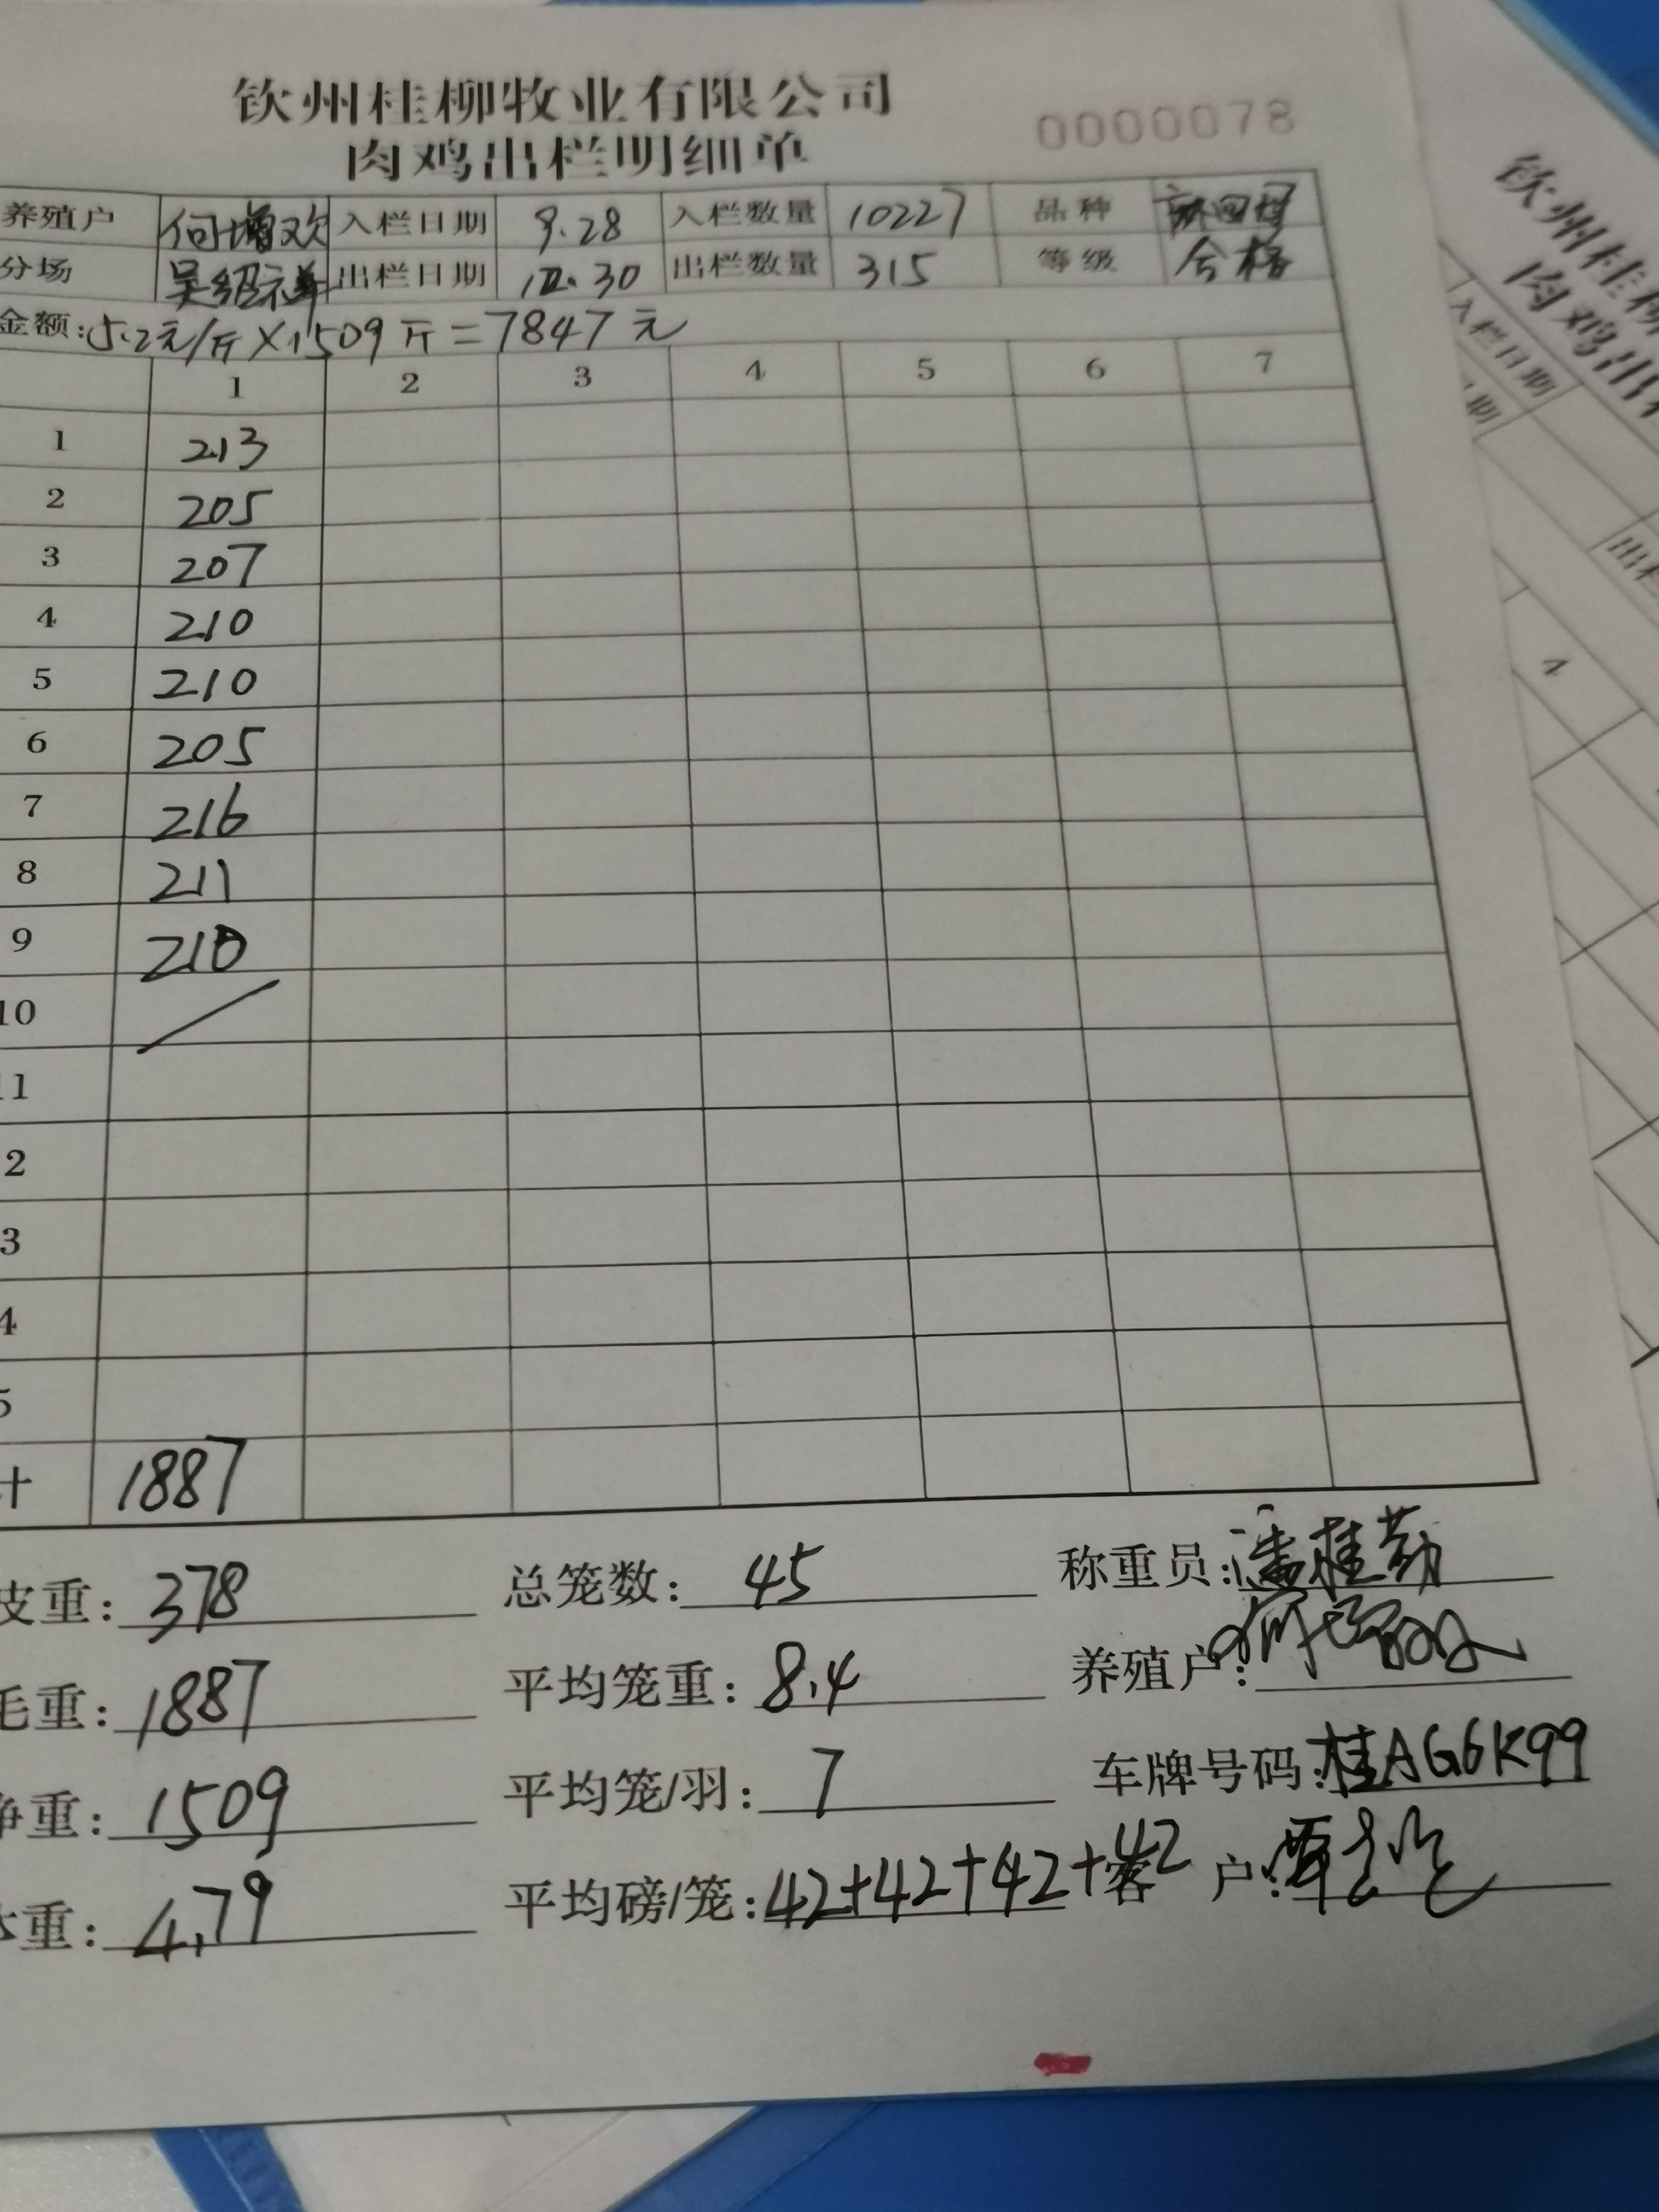 钦州桂柳牧业有限公司
肉鸡出栏明细单
0000078
养殖户 何增欢 入栏日期 9.28 入栏数量 10227 品种
分场 吴绍祥 出栏日期 12.30 出栏数量 315 等级 合格
金额:5.2元/斤×1509斤=7847元
1 2 3 4 5 6 7
1 213
2 205
3 207
4 210
5 210
6 205
7 216
8 211
9 210
10
11
2
3
4
5
计 1887
皮重: 378 总笼数: 45 称重员: 潘桂勤
毛重: 1887 平均笼重: 8.4 养殖户:
净重: 1509 平均笼/羽: 7 车牌号码: 桂AG6K99
体重: 4.79 平均磅/笼: 42+42+42+42 客户:
钦州桂柳
肉鸡出栏
入栏日期
期
出栏
4